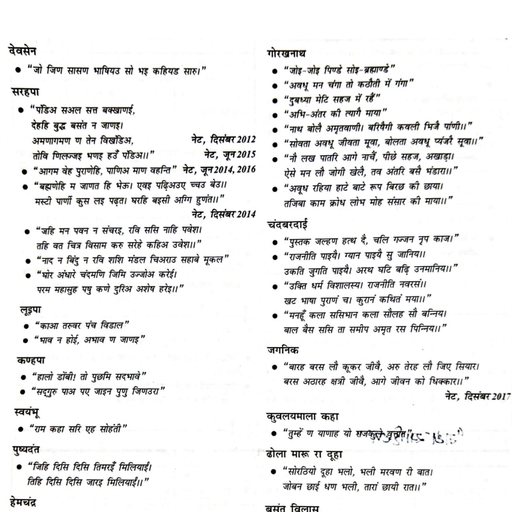 देवसेन
● “जो जिण सासण भाषियउ सो भइ कहियउ सारु।”
सरहपा
● “पंडिअ सअल सत्त बक्खाणई,
देहहि बुद्ध बसंत न जाणइ।
अमणागमण ण तेन विखंडिअ,
नेट, दिसंबर 2012
तोवि णिलज्जइ भणइ हउँ पंडिअ।।”
नेट, जून 2015
● “आगम वेह पुराणेहि, पाणिअ माण वहन्ति”
नेट, जून 2014, 2016
● “बह्मणेहि म जाणत हि भेऊ। एवइ पढ़िअउए च्चउ बेउ।।
मस्टी पाणी कुस लइ पढ़त। घरहि बइसी अग्गि हुणंत।।”
नेट, दिसंबर 2014
● “जहि मन पवन न संचरइ, रवि ससि नाहि पवेश।
तहि वत चित्र विसाम करु सरेहे कहिअ उवेश।।”
● “नाद न बिंदु न रवि शशि मंडल चिअराउ सहावे मूकल”
● “घोर अंधारे चंदमणि जिमि उज्जोअ करेई।
परम महासुह पषु कणे दुरिअ अशेष हरेइ।।”
लूइपा
● “काआ तरुवर पंच विडाल”
● “भाव न होई, अभाव ण जाणइ”
कण्हपा
● “हालो डोंबी! तो पुछमि सदभावे”
● “सद्गुरु पाअ पए जाइब पुणु जिणउरा”
स्वयंभू
● “राम कहा सरि एह सोहंती”
पुष्पदंत
● “जिहि दिसि दिसि तिमरइँ मिलियाई।
तिहि दिसि दिसि जारइ मिलियाई।।”
हेमचंद्र
गोरखनाथ
● “जोइ-जोइ पिण्डे सोइ-ब्रह्माण्डे”
● “अवधू मन चंगा तो कठौती में गंगा”
● “दुबध्या मेटि सहज में रहैं”
● “अभि-अंतर की त्यागै माया”
● “नाथ बोलै अमृतवाणी। बरिषैगी कवली भिजै पांणी।।”
● “सोवता अवधू जीवता मूवा, बोलता अवधू प्यंजरै सूवा।।”
● “नौ लख पातरि आगे नाचैं, पीछे सहज, अखाड़ा।
ऐसे मन लौ जोगी खेलै, तव अंतरि बसै भंडारा।।”
● “अवूध रहिया हाटे बाटे रूप बिरछ की छाया।
तजिबा काम क्रोध लोभ मोह संसार की माया।।”
चंदबरदाई
● “पुस्तक जल्हण हत्थ दै, चलि गज्जन नृप काज।”
● “राजनीति पाइयै। ग्यान पाइयै सु जानिय।।
उकति जुगति पाइयै। अरथ घटि बढ़ि उनमानिय।।”
● “उक्ति धर्म विशालस्य। राजनीति नवरसं।।
खट भाषा पुराणं च। कुरानं कथितं मया।।”
● “मनहूँ कला ससिभान कला सौलह सौ बन्निय।
बाल बैस ससि ता समीप अमृत रस पिन्निय।।”
जगनिक
● “बारह बरस लौ कूकर जीवै, अरु तेरह लौ जिए सियार।
बरस अठारह क्षत्री जीवै, आगे जीवन को धिक्कार।।”
नेट, दिसंबर 2017
कुवलयमाला कहा
● “तुम्हें ण याणाह यो
ढोला मारू रा दूहा
● “सोरठियो दूहा भलो, भली मरवण री बात।
जोबन छाई धण भली, तारां छायी रात।।”
बसंत विलास